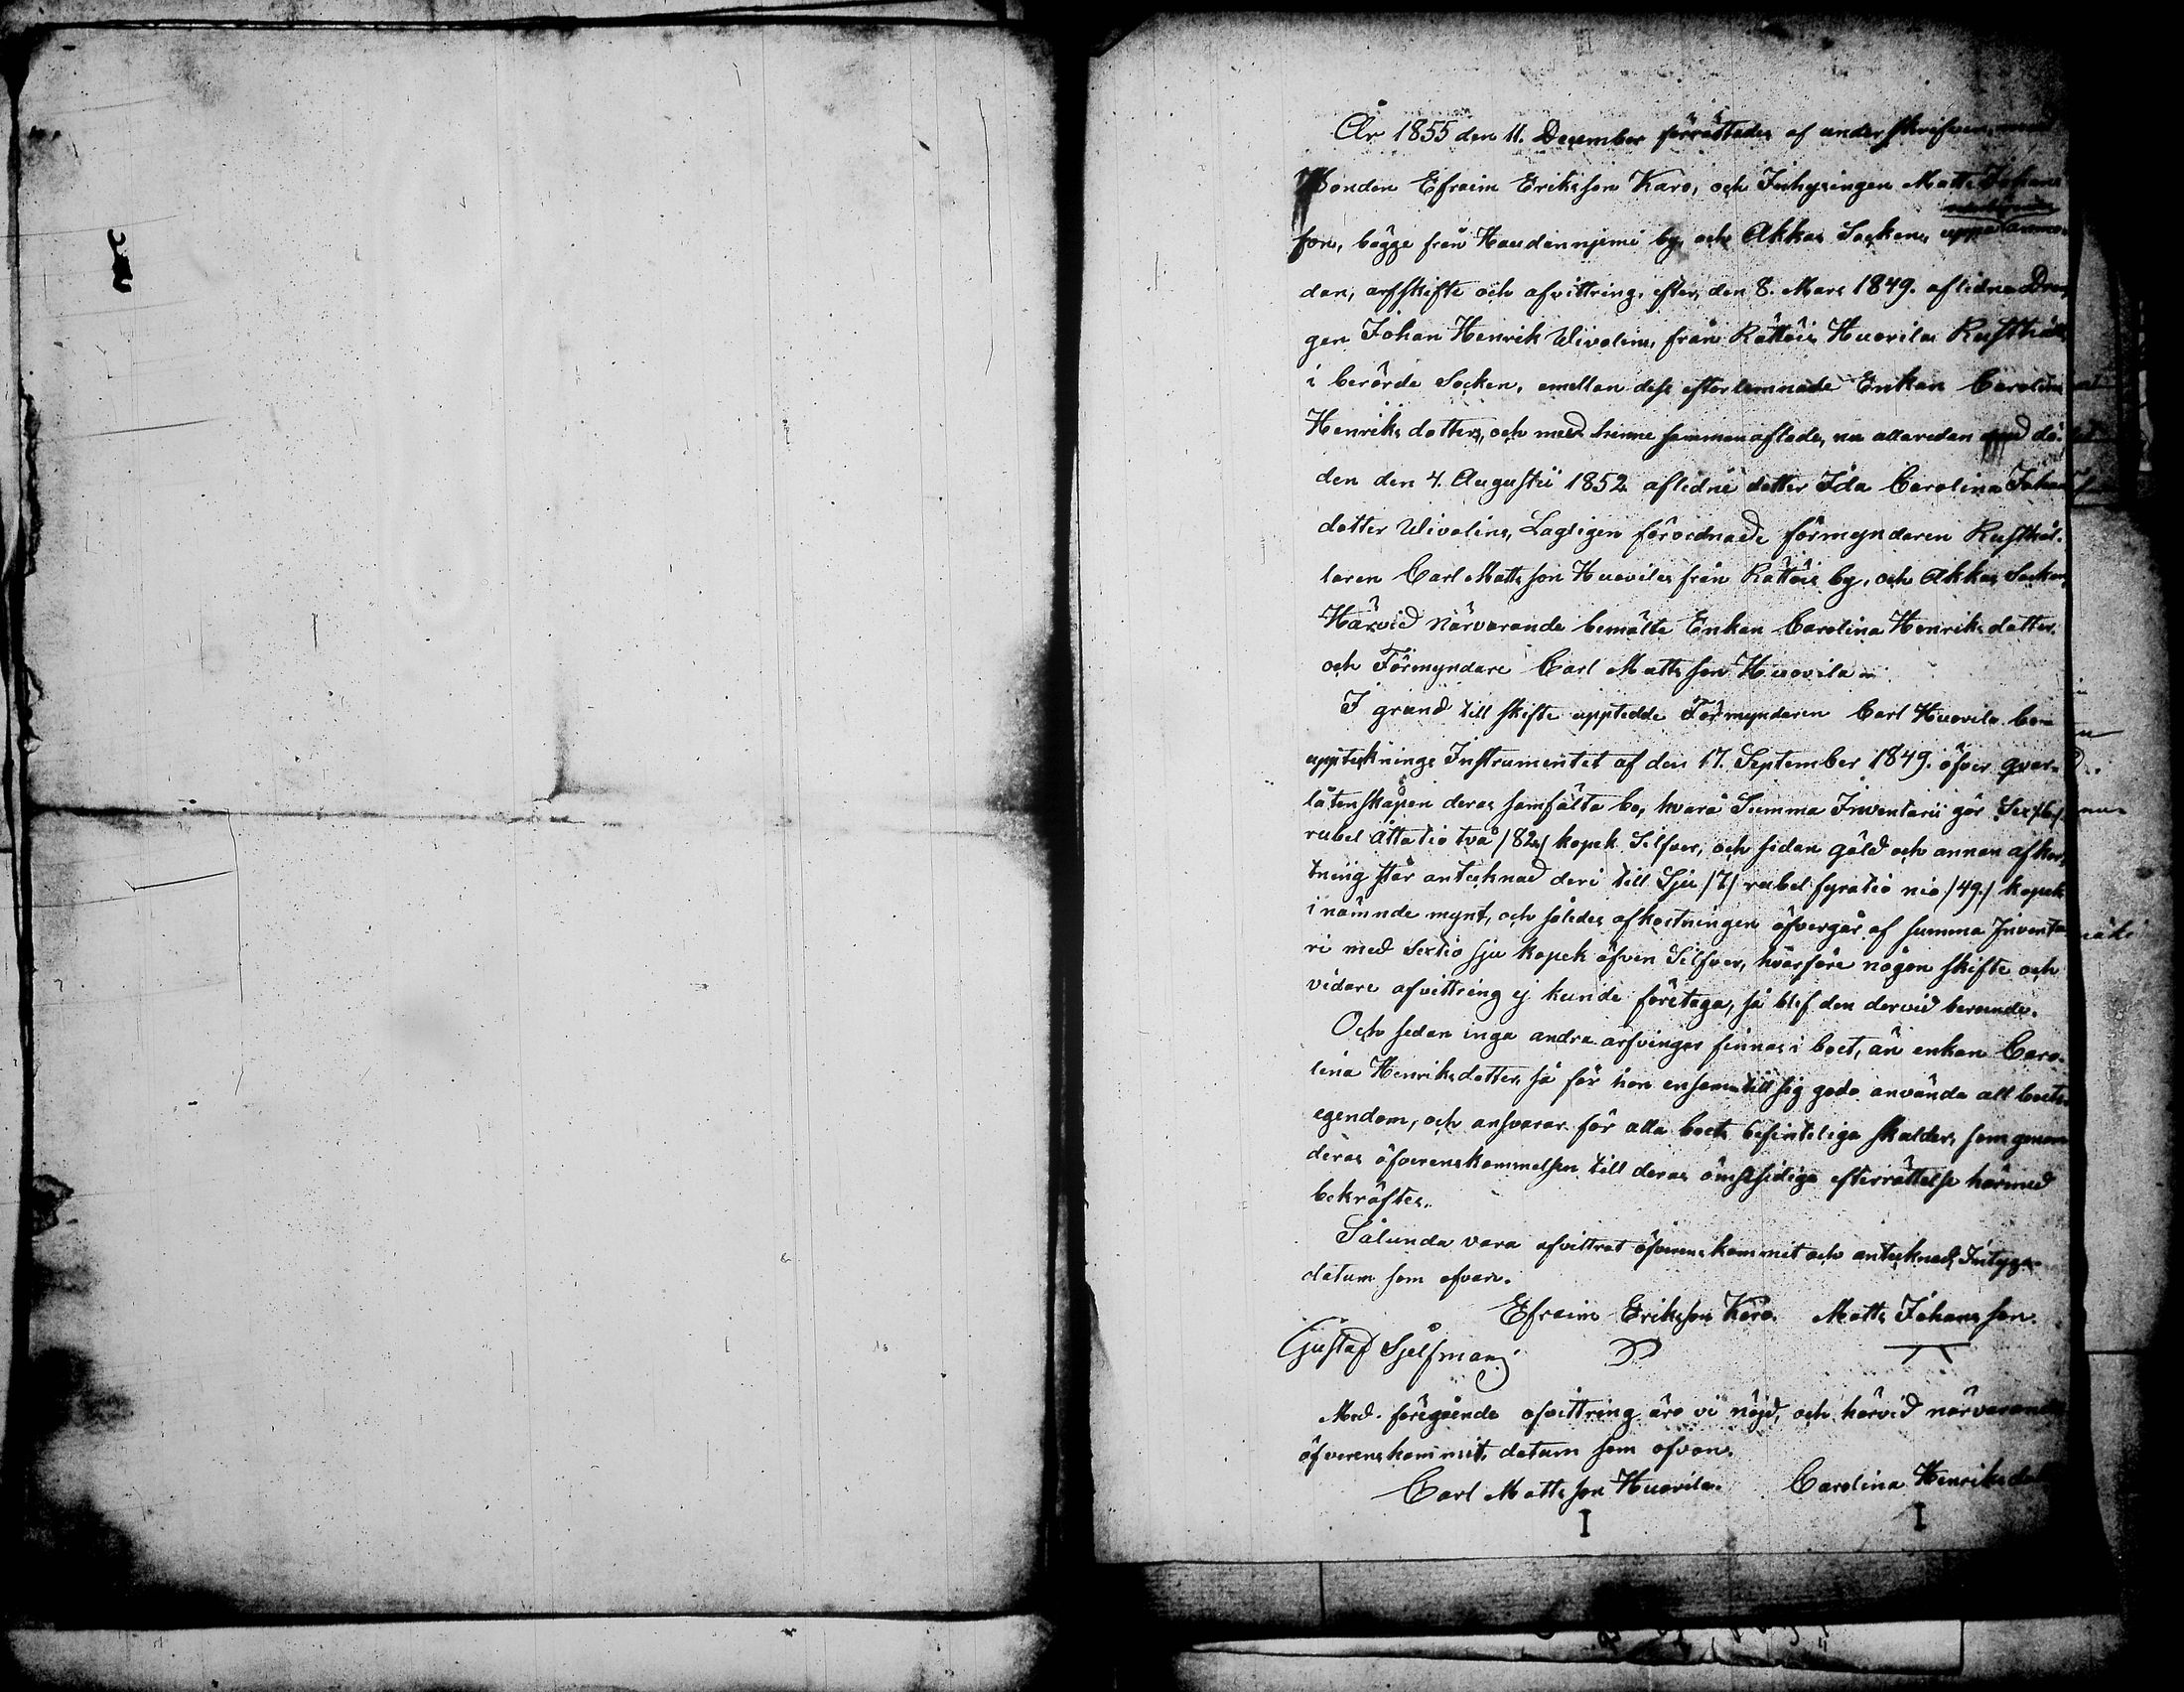 År 1855 den 11. December förrättades af underskrifven,
Bonden Efraim Eriksson Karo, och Inhysingen Matts Johans
son, bägge från Haudanniemi by, och Akkas Socken, uppå anmo-
dan, arfskifte och afvittring, efter, den 8. Mars 1849. aflidne Drän
gen Johan Henrik Wivolin, från Rättöis Huovila Rusthåll
i berörde Socken, emellan dess efterlemnade Enkan Carolina
Henriks dotter, och med henne sammanaflade, nu allaredan med dö-
den den 4. Augustii 1852 aflidne dotter Ida Carolina Johans
dotter Wivolins, Lagligen förordnade förmyndaren Rusthål-
laren Carl Matts son Huovila från Rättöis by, och Akkas Socken,
Härvid närvarande bemälte Enkan Carolina Henriks dotter,
och Förmyndare Carl Matts son Huovila.
I grund till skifte upptedde Förmyndaren Carl Huovila bou
pptecknings Instrumentet af den 17. September 1849. öfver qvar-
låtenskapen deras samfälta bo, hvars Summa Inventarii gör Sex /6/
rubel Åttatio två /82/ kopek Silfver, och sedan gäld och annan afkor-
tning står antecknad deri till Sju /7/ rubel fyratio nio /49./ kopek
i nämnde mynt, och således afkortningen öfvergår af summa Inventa
ri med Sextio sju kopek äfven Silfver, hvarföre någon skifte och
vidare afvittring ej kunde företaga, så blef den dervid beroende.
Och sedan inga andra arfvingar finnas i boet, än enkan Caro-
lina Henriksdotter, så får hon ensam till sig godo använda all boets
egendom, och ansvarar för alla boets befinteliga skulder, som genom
deras öfverenskommelsen till deras ömsesidiga efterrättelse härmed
bekräftes.
Sålunda vara afvittrat öfverenskommit och antecknad, Intygar
datum som ofvan.
Efraim Eriksson Karo. Matts Johans son.
Gustaf Sjelfman
Med föregående afvittring äro vi nöjd, och härvid närvarande
öfverenskommit, datum som ofvan.
Carl Matts son Huovila. Carolina Henriks dot